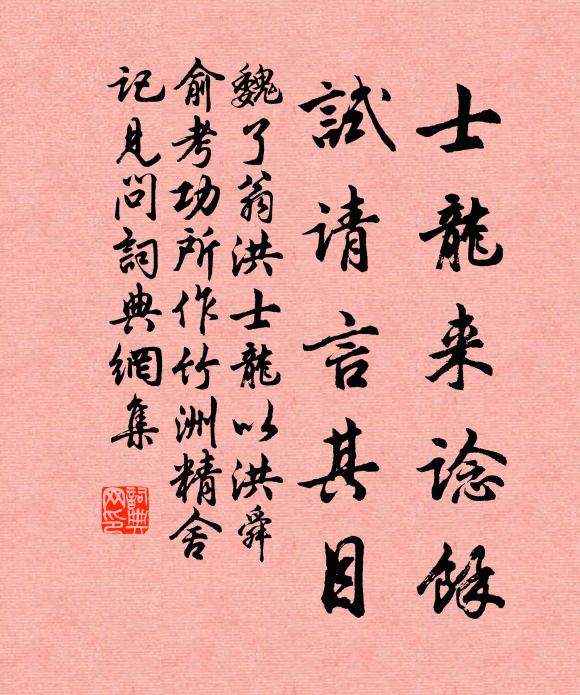 士龍来諗餘
試请言其目
魏了翁洪士龍以洪舜
俞考功所作竹洲精舍
记見问詞典網集
詞典网印